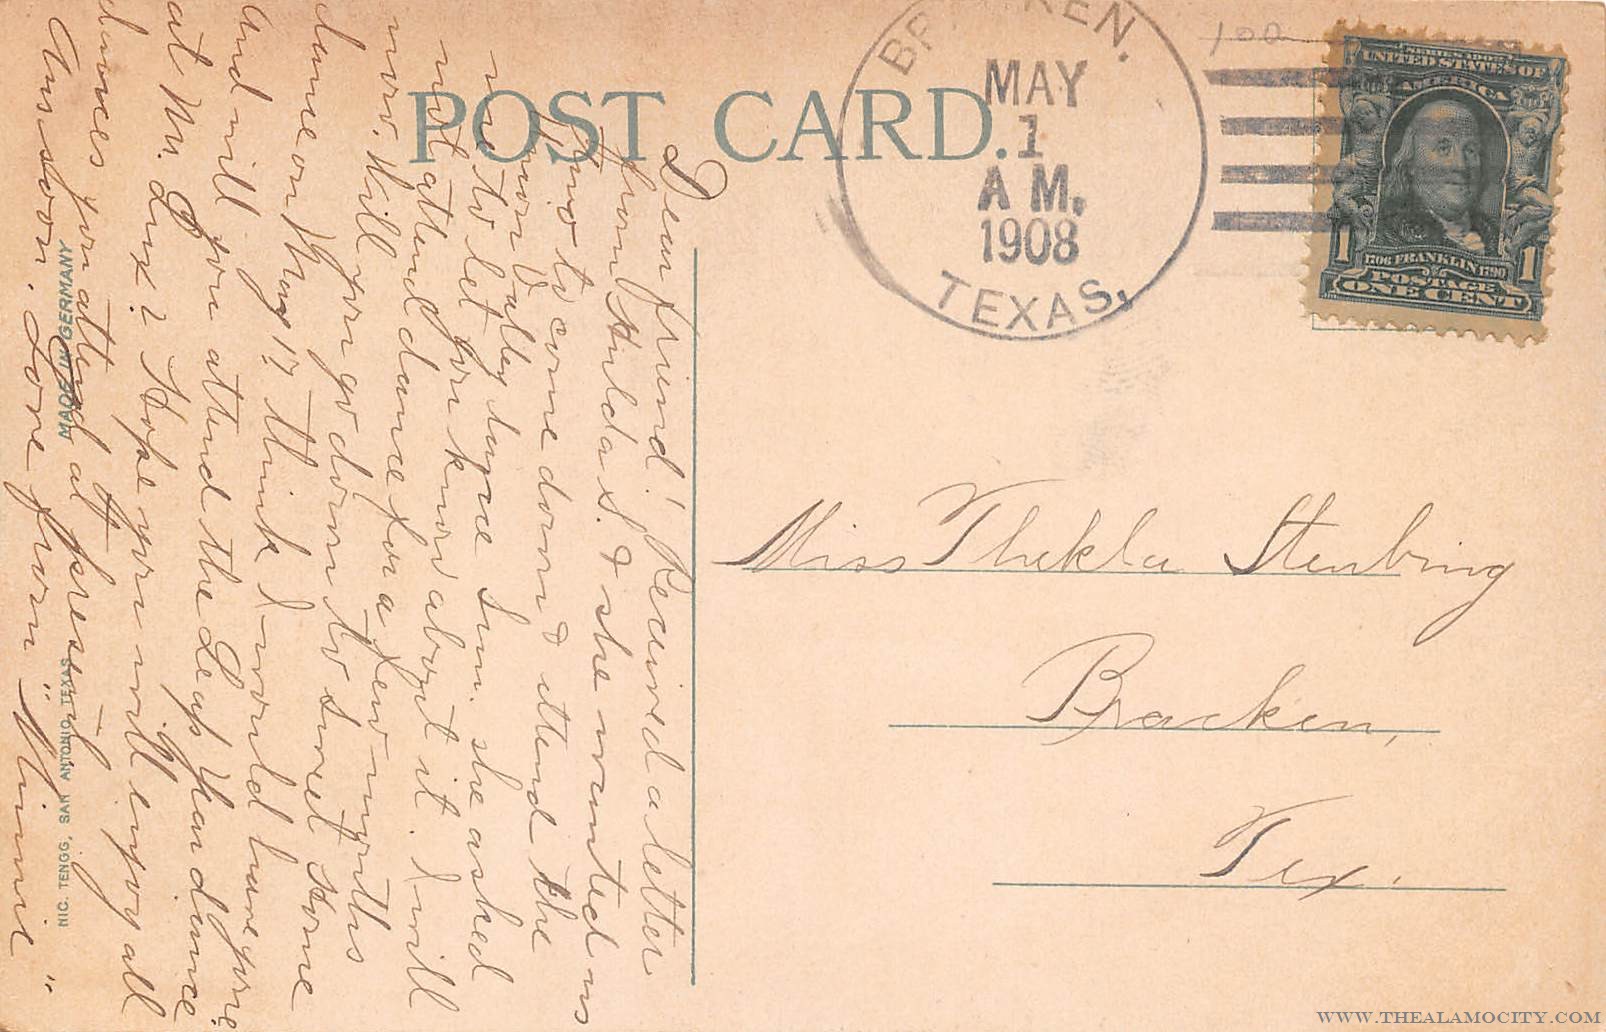 POST CARD.
BRACKEN.
MAY
1
A M.
1908
TEXAS.
100
SERIES 1902
UNITED STATES OF
AMERICA
1706 FRANKLIN 1790
1 POSTAGE 1
ONE CENT
Dear friend! Received a letter
from Huldas. & she wanted us
two to come down & attend the
dance Sun. she asked
me to let you know about it. I will
not attend dance for a few months
now. Will you go down to Sweet Home
dance on May 17 think I would have gone
And will you attend the Leap Year dance
at Mr. Lux? Hope you will enjoy all
dances you attend at present
Ans soon. Love from "Minnie"
Miss Thekla Steubing
Bracken,
Tex.
MADE IN GERMANY
NIC. TENGG, SAN ANTONIO, TEXAS
WWW.THEALAMOCITY.COM